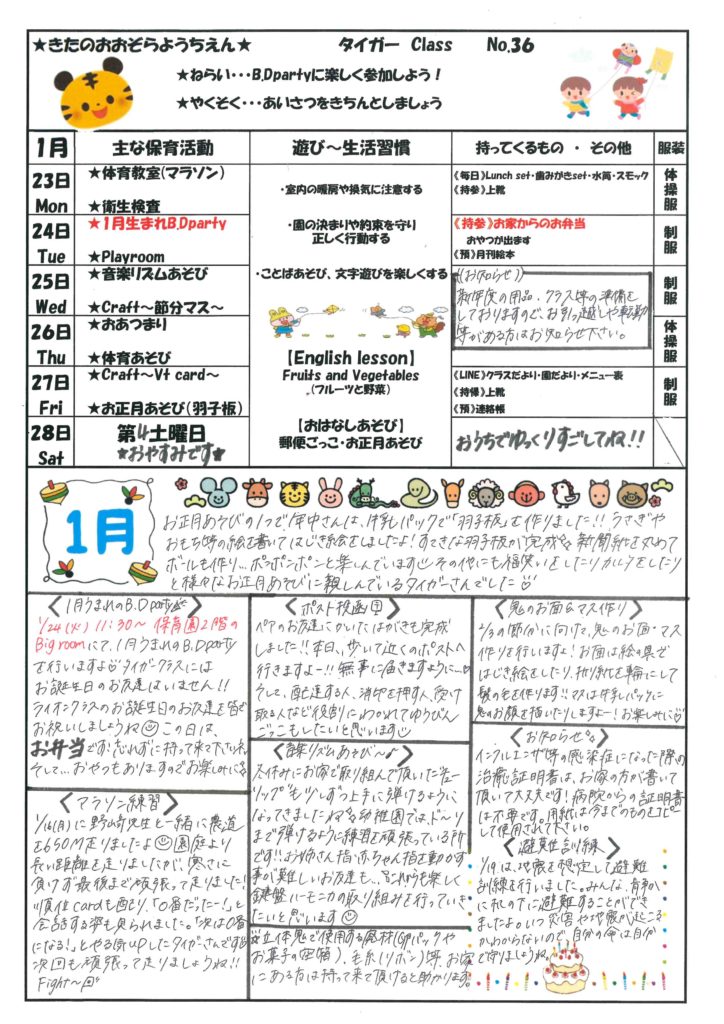 ★きたのおおぞらようちえん★ タイガー Class No.36
★ねらい・・・B.Dpartyに楽しく参加しよう！
★やくそく・・・あいさつをきちんとしましょう
1月 主な保育活動 遊び～生活習慣 持ってくるもの ・ その他 服装
23日 Mon
★体育教室(マラソン)
★衛生検査
・室内の暖房や換気に注意する
《毎日》Lunch set・歯みがきset・水筒・スモック
《持参》上靴
体操服
24日 Tue
★1月生まれB.Dparty
★Playroom
・園の決まりや約束を守り
正しく行動する
《持参》お家からのお弁当
おやつが出ます
《預》月刊絵本
制服
25日 Wed
★音楽リズムあそび
★Craft～節分マス～
・ことばあそび、文字遊びを楽しくする
《お知らせ》
新年度の用品・クラス等の準備を
しておりますので、お引っ越しや転勤
等がある方はお知らせ下さい。
制服
26日 Thu
★おあつまり
★体育あそび
体操服
【English lesson】
Fruits and Vegetables
(フルーツと野菜)
27日 Fri
★Craft～Vt card～
★お正月あそび(羽子板)
《LINE》クラスだより・園だより・メニュー表
《持帰》上靴
《預》連絡帳
制服
28日 Sat
第4土曜日
★おやすみです★
【おはなしあそび】
郵便ごっこ・お正月あそび
おうちでゆっくりすごしてね!!
1月
お正月あそびの1つで年中さんは、牛乳パックで「羽子板」を作りました!! うさぎや
おもち等の絵を書いてはじき絵をしましたよ! すてきな羽子板が完成 新聞紙を丸めて
ボールも作り…ポンポンポンと楽しんでいます その他にも福笑いをしたりカルタをしたり
と様々なお正月あそびに親しんでいるタイガーさんでした
〈1月うまれのB.Dparty〉
1/24(火) 11:30～ 保育園2階の
Big roomにて、1月うまれのB.Dparty
を行いますよ タイガークラスには
お誕生日のお友達はいません!!
ライオンクラスのお誕生日のお友達を皆で
お祝いしましょうね この日は、
お弁当です! 忘れずに持って来て下さいね。
そして…おやつもありますのでお楽しみに
〈マラソン練習〉
1/16(月)に野崎先生と一緒に農道
を650m走りましたよ 園庭より
長い距離を走りましたが、寒さに
負けず最後まで頑張って走りました!
順位cardも配り、「0番だったー!」と
会話する姿も見られました。「次は0番
になる!」とやる気upしたタイガーさんです
次回も頑張って走りましょうね!!
Fight～
〈ポスト投函〉
ペアのお友達にかいたはがきも完成
しました!! 本日、歩いて近くのポストへ
行きますよー!! 無事に届きますように…
そして、配達する人、消印を押す人、受け
取る人など役割にわかれてゆうびん
ごっこもしたいと思います
〈音楽リズムあそび～♪〉
冬休みにお家で取り組んで頂いた
も少しずつ上手に弾けるように
なってきましたね 幼稚園ではド～ソ
まで弾けるように練習を頑張っている所
です!! お姉さん指、赤ちゃん指を動かす
事が難しいお友達も…これからも楽しく
鍵盤ハーモニカの取り組みを行っていき
たいと思います
立体鬼で使用する廃材(牛乳パックや
お菓子の空箱)、毛糸(リボン)等、お家
にある方は持って来て頂けると助かります。
〈鬼のお面＆マス作り〉
2/3の節分に向けて、鬼のお面・マス
作りを行いますー! お面は絵の具で
はじき絵をしたり、折り紙を輪にして
髪の毛を作ります!! マスは牛乳パックに
鬼のお顔を描いたりしますよー! お楽しみに
〈お知らせ〉
インフルエンザ等の感染症になった際の
治癒証明書は、お家の方が書いて
頂いて大丈夫です! 病院からの証明書
は不要です。用紙は今までのものをコピー
して使用されて下さい。
〈避難訓練〉
1/19は、地震を想定して避難
訓練を行いました。みんな、静かに
避難することができ
ましたよ。いつ災害や地震が起こるか
わからないので、自分の命は自分
で守りましょうね。